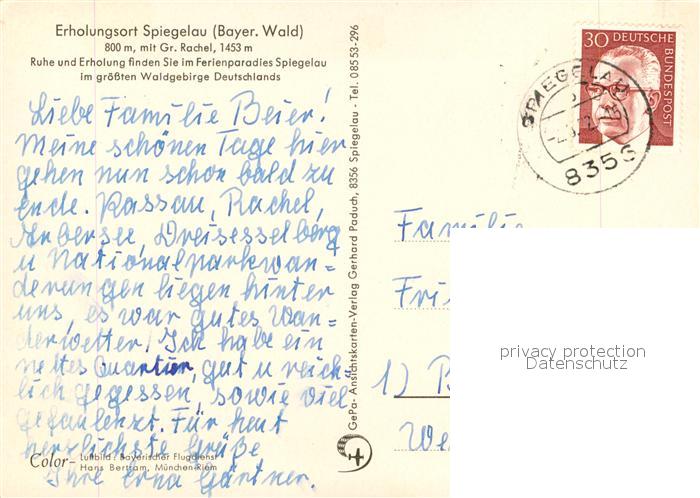 Erholungsort Spiegelau (Bayer. Wald)
800 m, mit Gr. Rachel, 1453 m
Ruhe und Erholung finden Sie im Ferienparadies Spiegelau
im größten Waldgebirge Deutschlands
Liebe Familie Beier!
Meine schönen Tage hier
gehen nun schon bald zu
ende. Passau, Rachel,
Arbersee, Dreisesselberg
u Nationalparkwan=
derungen liegen hinter
uns, es war gutes Wan=
derwetter! Ich habe ein
nettes Quartier, gut u reich
lich gegessen, sowie viel
gefaulenzt. Für heut
herzlichste Grüße
Ihre Erna Gärtner.
Color- Luftbild: Bayerischer Flugdienst
Hans Bertram, München-Riem
GePa- Ansichtskarten-Verlag Gerhard Paduch, 8356 Spiegelau - Tel. 08553-296
30 DEUTSCHE
BUNDESPOST
SPIEGELAU
8356
Familie
Fri
1) B
We
privacy protection
Datenschutz